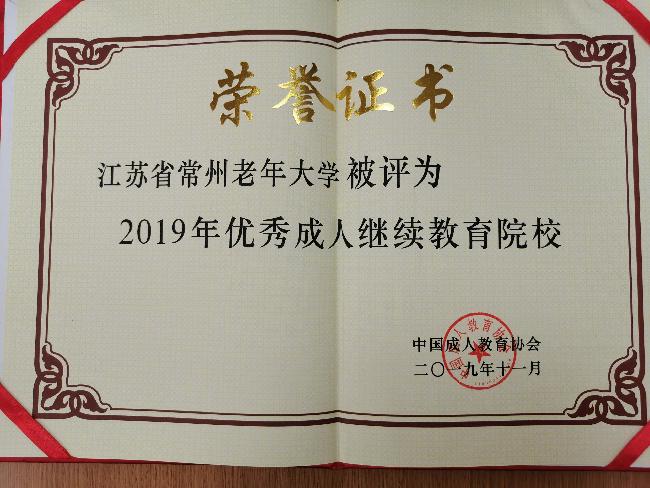 荣誉证书
江苏省常州老年大学被评为
2019年优秀成人继续教育院校
中国成人教育协会
二〇一九年十一月
中国成人教育协会